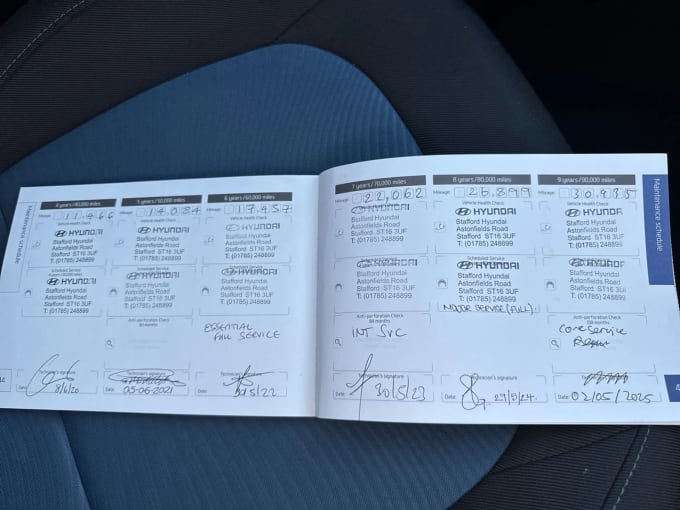 Maintenance schedule
4 years/40,000 miles
Mileage 11466
Vehicle Health Check:
HYUNDAI
Stafford Hyundai
Astonfields Road
Stafford ST16 3UF
T: (01785) 248899
Scheduled Service
HYUNDAI
Stafford Hyundai
Astonfields Road
Stafford ST16 3UF
T: (01785) 248899
Technician's signature
Date: 8/6/20
5 years/50,000 miles
Mileage 14084
Vehicle Health Check:
HYUNDAI
Stafford Hyundai
Astonfields Road
Stafford ST16 3UF
T: (01785) 248899
Scheduled Service
HYUNDAI
Stafford Hyundai
Astonfields Road
Stafford ST16 3UF
T: (01785) 248899
Anti-perforation Check
60 months
Technician's signature
Date: 05-06-2021
6 years/60,000 miles
Mileage 17957
Vehicle Health Check:
HYUNDAI
Stafford Hyundai
Astonfields Road
Stafford ST16 3UF
T: (01785) 248899
HYUNDAI
Stafford Hyundai
Astonfields Road
Stafford ST16 3UF
T: (01785) 248899
ESSENTIAL
FULL SERVICE
Technician's signature
Date:
7 years/70,000 miles
Mileage 22,062
HYUNDAI
Stafford Hyundai
Astonfields Road
Stafford ST16 3UF
T: (01785) 248899
HYUNDAI
Stafford Hyundai
Astonfields Road
Stafford ST16 3UF
T: (01785) 248899
Anti-perforation Check
84 months
INT SVC
Technician's signature
Date: 30/5/23
8 years/80,000 miles
Mileage 26,899
Vehicle Health Check:
HYUNDAI
Stafford Hyundai
Astonfields Road
Stafford ST16 3UF
T: (01785) 248899
Scheduled Service
HYUNDAI
Stafford Hyundai
Astonfields Road
Stafford ST16 3UF
T: (01785) 248899
MOTOR SERVICE (FULL).
Technician's signature
Date: 29/5/24.
9 years/90,000 miles
Mileage 30,935
Vehicle Health Check:
HYUNDAI
Stafford Hyundai
Astonfields Road
Stafford ST16 3UF
T: (01785) 248899
Scheduled Service
HYUNDAI
Stafford Hyundai
Astonfields Road
Stafford ST16 3UF
T: (01785) 248899
Anti-perforation Check
108 months
Core Service
Date: 02/05/2025
Maintenance schedule